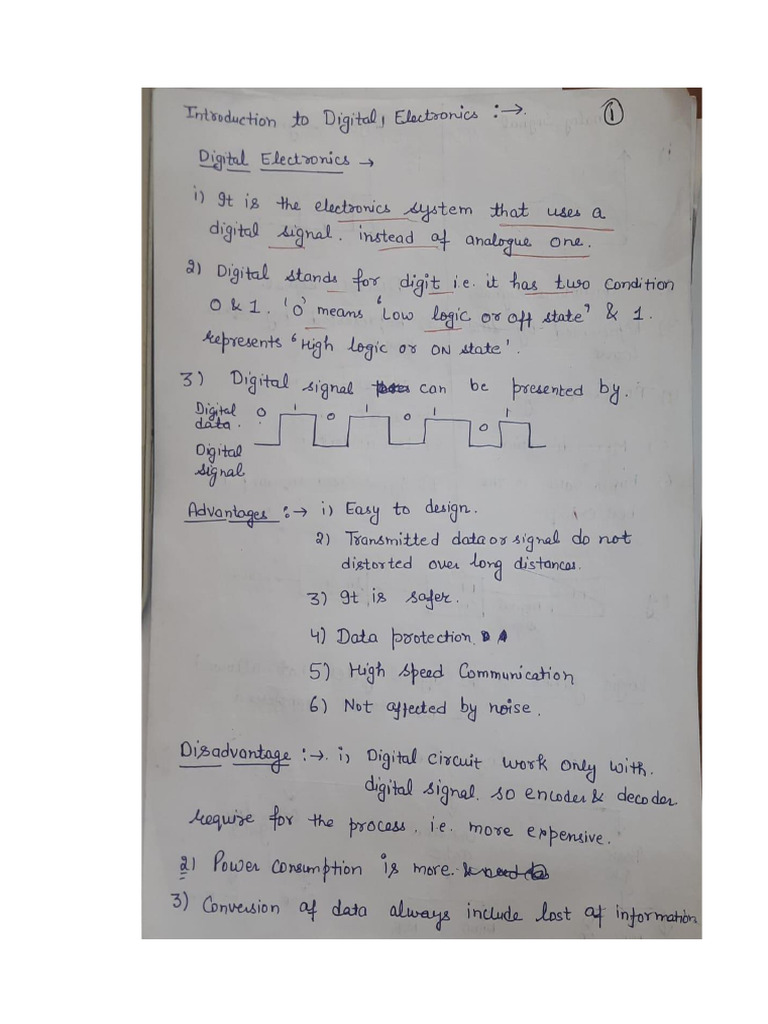 Introduction to Digital, Electronics :→. ①
Digital Electronics →
1) It is the electronics system that uses a
digital signal. instead of analogue one.
2) Digital stands for digit i.e. it has two condition
0 & 1. '0' means 'Low logic or off state' & 1.
represents 'High logic or ON state'.
3) Digital signal can be presented by.
Digital data. 0 1 0 1 0 1 0 1
Digital signal
Advantages :→ 1) Easy to design.
2) Transmitted data or signal do not
distorted over long distances.
3) It is safer.
4) Data protection.
5) High speed Communication
6) Not affected by noise.
Disadvantage :→. 1) Digital circuit work only with.
digital signal. so encoder & decoder
require for the process. i.e. more expensive.
2) Power consumption is more.
3) Conversion of data always include lost of information